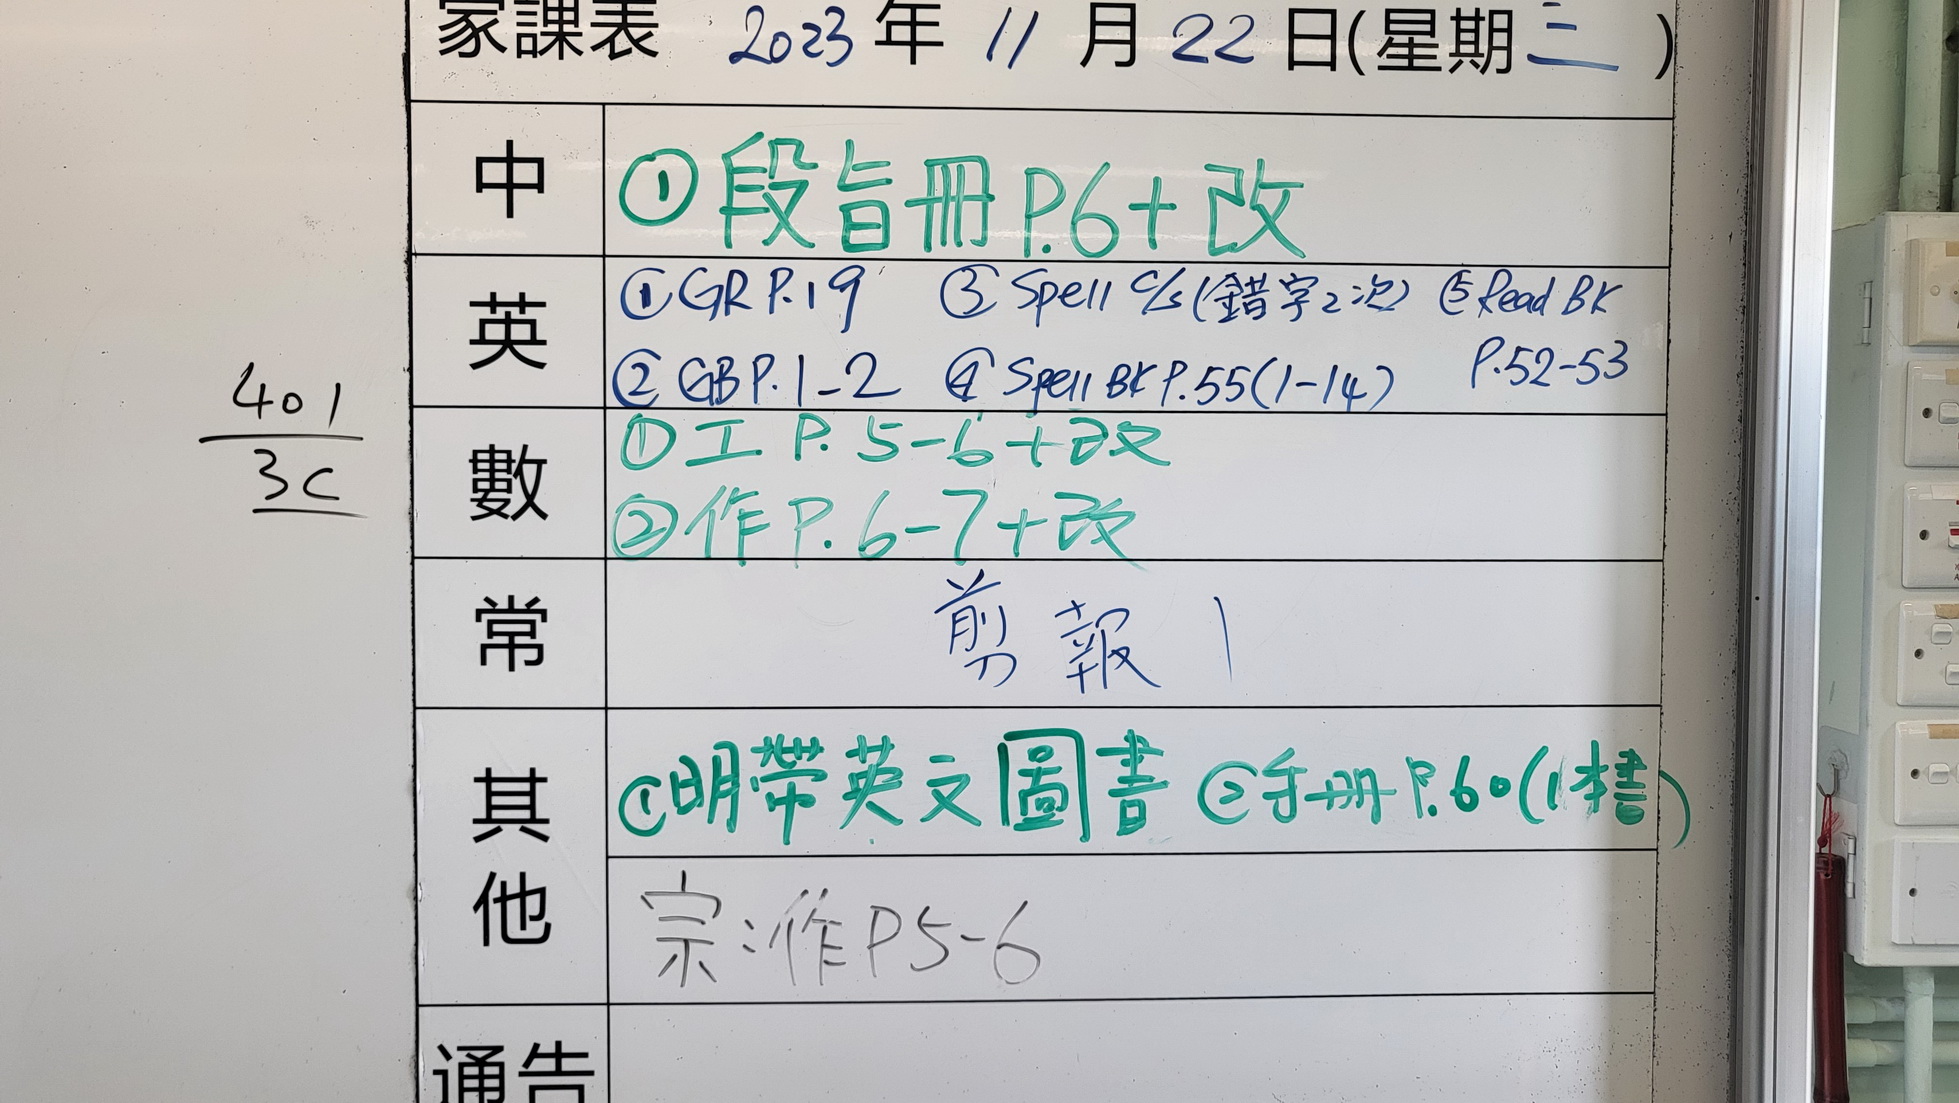 家課表 2023年11月22日(星期三)
中 ①段旨冊P.6+改
英 ①GR P.19 ③Spell c/s(錯字2次) ⑤Read BK
②GB P.1-2 ④Spell BK P.55(1-14) P.52-53
401
3C
數 ①工P.5-6+改
②作P.6-7+改
常 剪報1
其他 ①明帶英文圖書 ②手冊P.60(1本書)
宗:作P5-6
通告